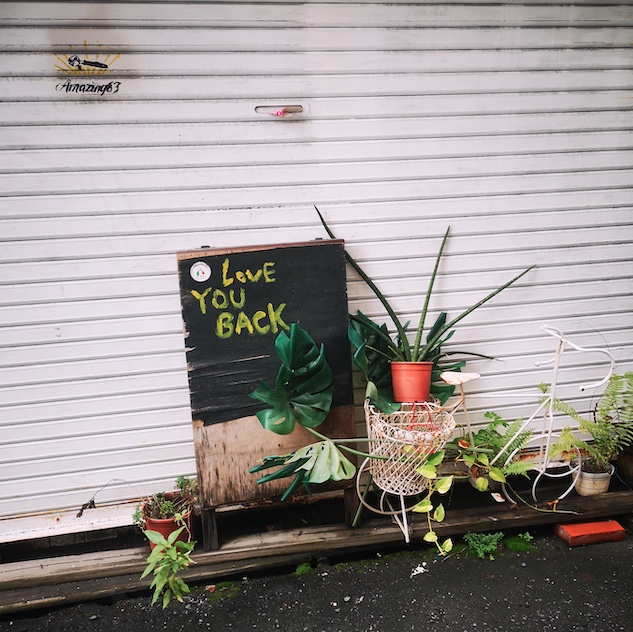 Amazing63
LOVE
YOU
BACK